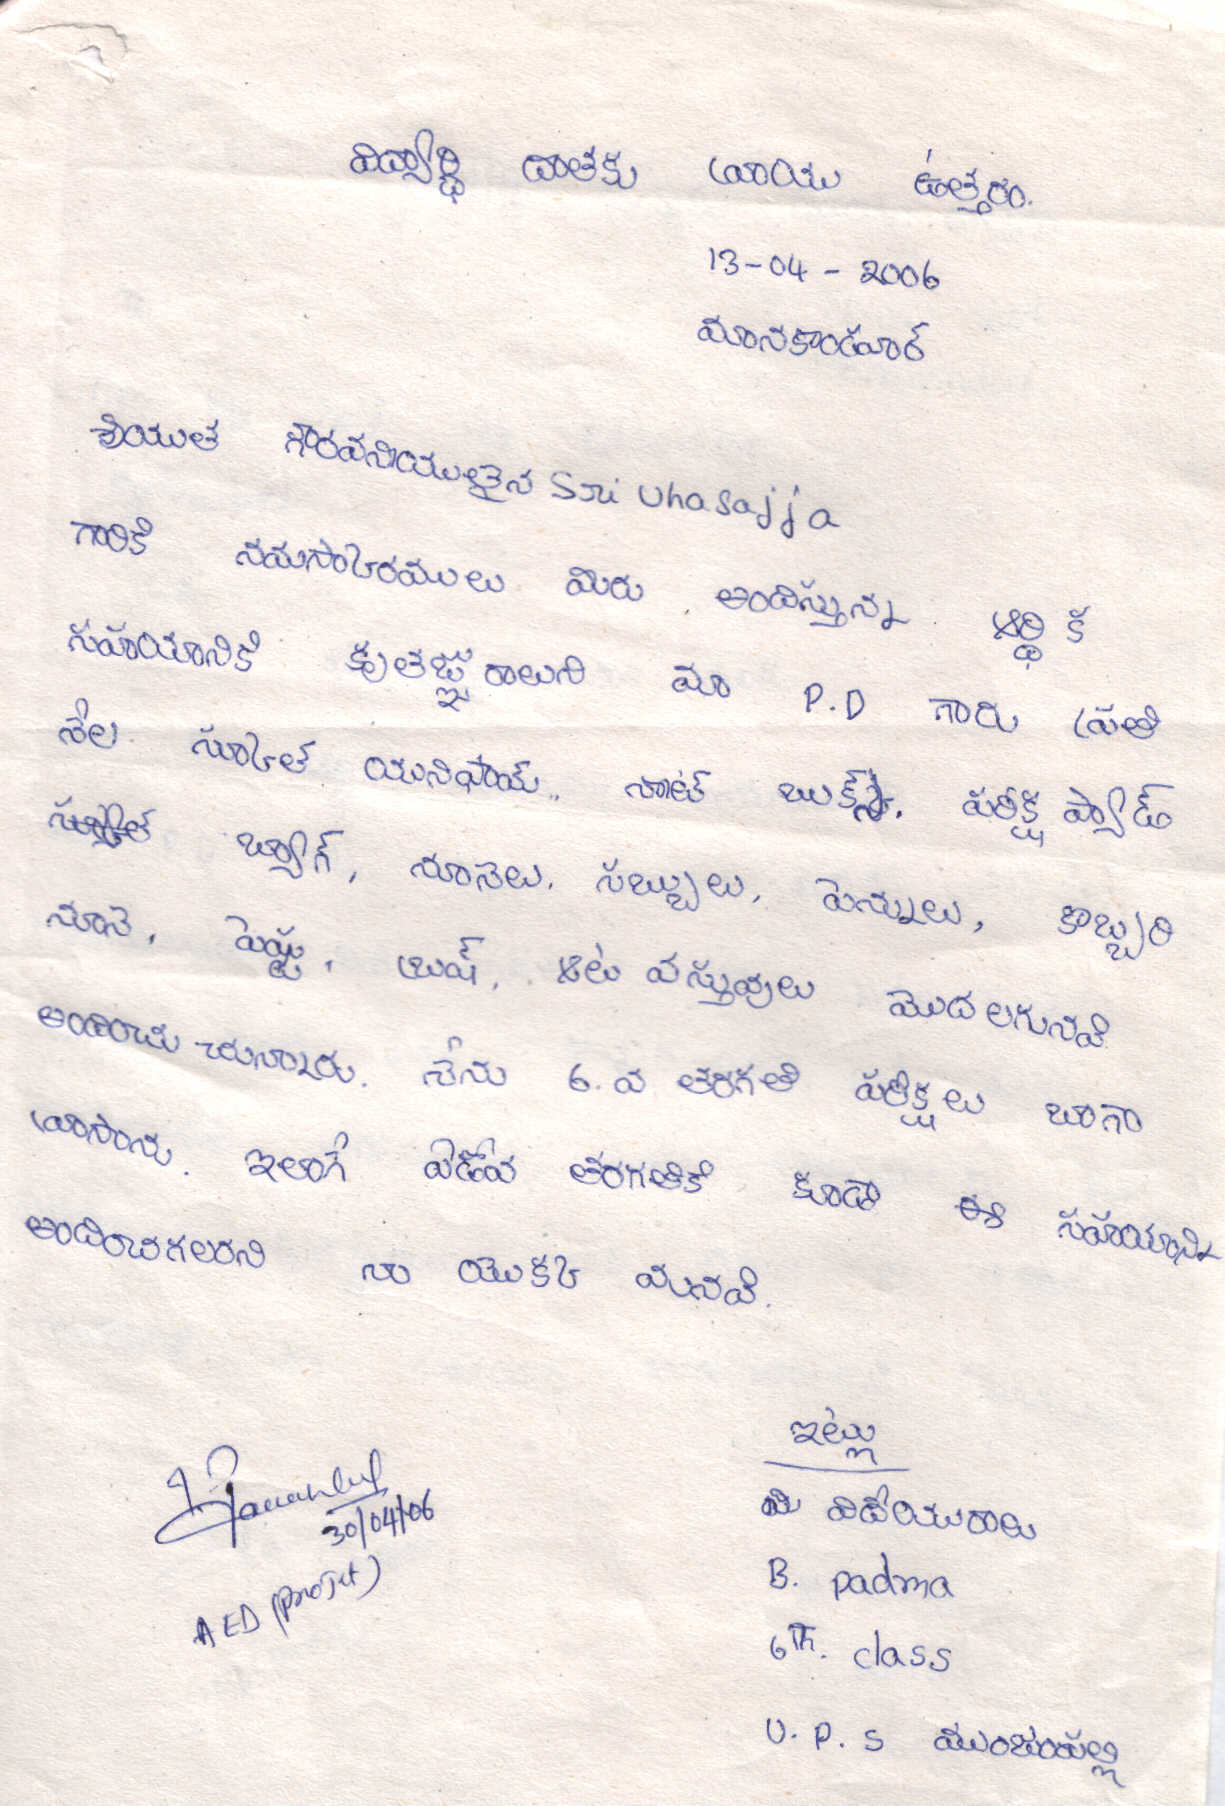 విద్యార్థి దాతకు వ్రాయు ఉత్తరం.
13-04-2006
మానకొండూర్
శ్రీయుత గౌరవనీయులైన Sri Uhasajja
గారికి నమసాక్రములు మీరు అందిస్తున్న ఆర్థిక
సహయానికి కృతజ్ఞురాలుని మా P.D గారు ప్రతి
నేల స్కూల్ యునిఫాయ్, నోట్ బుక్స్, పరీక్ష ప్యాడ్
బ్యాగ్, నూనెలు. సబ్బులు, పెన్నులు, కొబ్బరి
నూనె, పేష్టు, బ్రుష్, ఆట వస్తువులు మొదలగునవి
అందించు చునాన్రు. నేను 6.వ తరగతి పరీక్షలు బాగా
వ్రాసాను. ఇలాగే ఏడోవ తరగతికి కూడా ఈ సహయాన్ని
అందించగలరని నా యొకక్ మనవి.
ఇట్లు
మీ విదేయురాలు
B. padma
6th. class
U.P.S ముంజంపల్లి
30/04/06
AED (Projet)